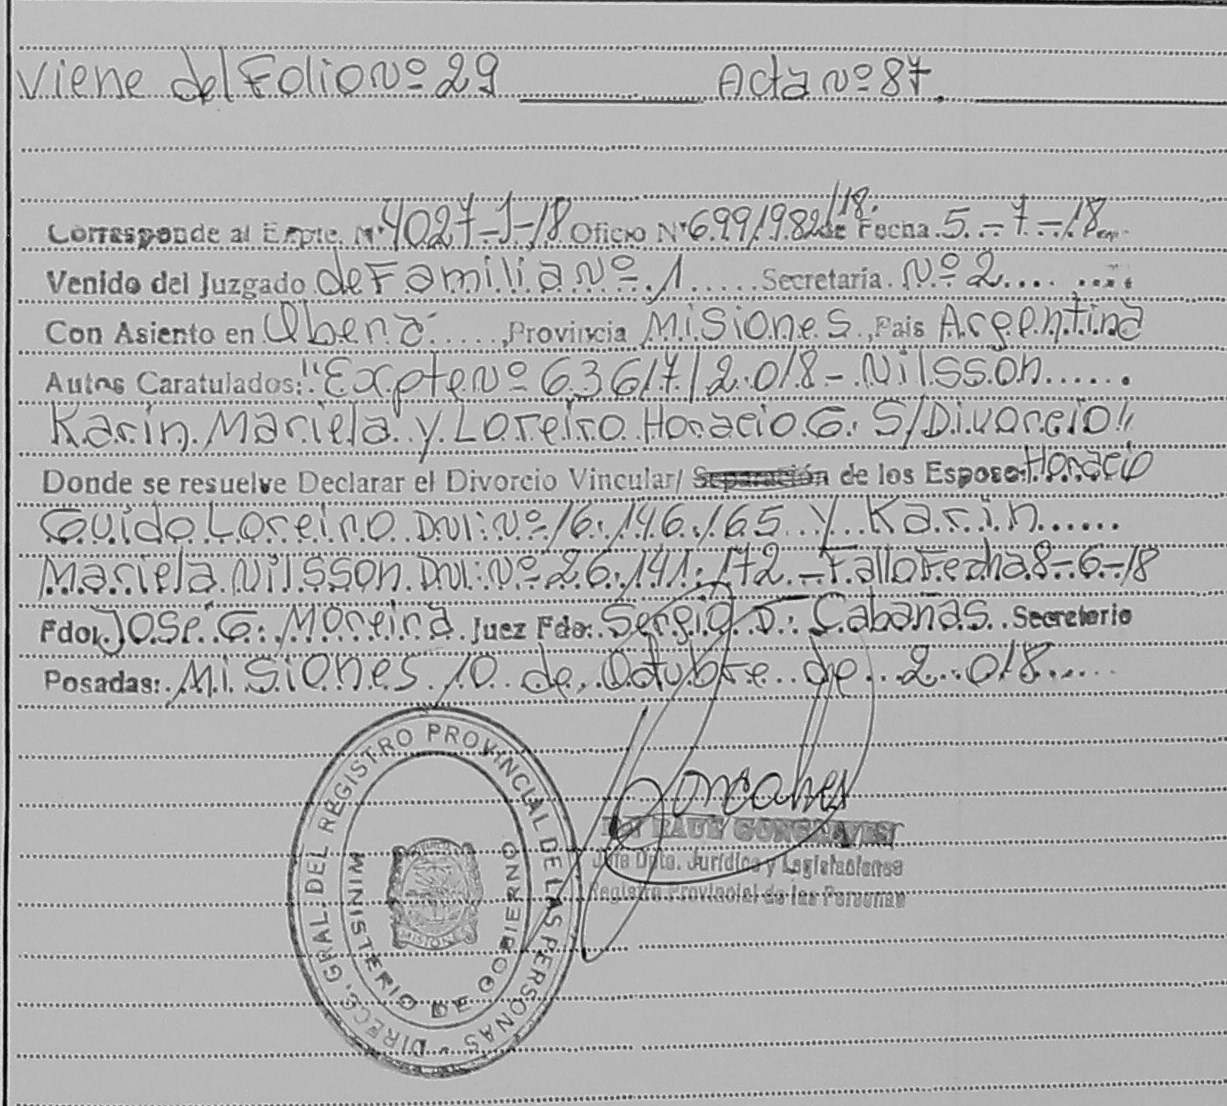 Viene del Folio Nº 29 Acta Nº 87.
Corresponde al Expte. Nº 4027-J-18 Oficio Nº 699/982/18. de Fecha 5.-7-18
Venido del Juzgado de Familia Nº 1 Secretaría Nº 2
Con Asiento en Oberá, Provincia Misiones, País Argentina
Autos Caratulados: "Expte Nº 63617/2.018- Nilsson
Karin Mariela y Loreiro Horacio G. S/Divorcio"
Donde se resuelve Declarar el Divorcio Vincular/ Separación de los Esposos: Horacio
Guido Loreiro DNI: Nº 16.146.165 y Karin
Mariela Nilsson DNI: Nº 26.141.172 - Fallo Fecha 8-6-18
Fdo. José G. Moreira Juez Fdo: Sergio D. Cabañas Secretario
Posadas: Misiones 10 de Octubre de 2.018
GONCALVES
Jefe Dpto. Jurídico y Legislaciones
Registro Provincial de las Personas
DIREC. GRAL. DEL REGISTRO PROVINCIAL DE LAS PERSONAS
MINISTERIO DE GOBIERNO
MISIONES